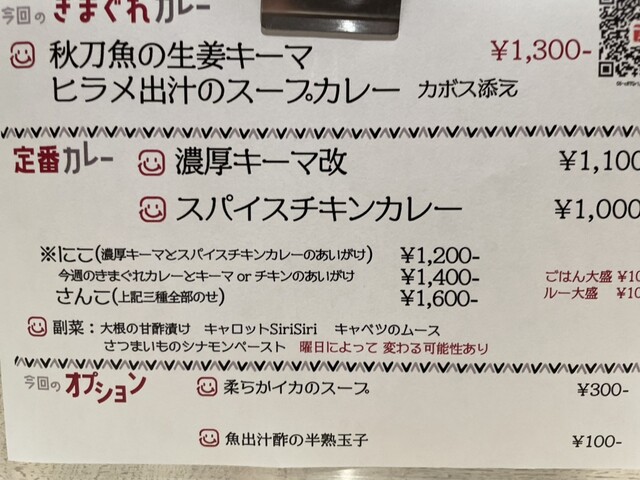 今回の きまぐれカレー
秋刀魚の生姜キーマ ¥1,300-
ヒラメ出汁のスープカレー カボス添え
定番カレー 濃厚キーマ改 ¥1,100
スパイスチキンカレー ¥1,000
※にこ(濃厚キーマとスパイスチキンカレーのあいがけ) ¥1,200-
今週のきまぐれカレーとキーマ or チキンのあいがけ ¥1,400- ごはん大盛 ¥10
さんこ(上記三種全部のせ) ¥1,600- ルー大盛 ¥10
副菜：大根の甘酢漬け キャロットSiriSiri キャベツのムース
さつまいものシナモンペースト 曜日によって変わる可能性あり
今回の オプション 柔らかイカのスープ ¥300-
魚出汁酢の半熟玉子 ¥100-